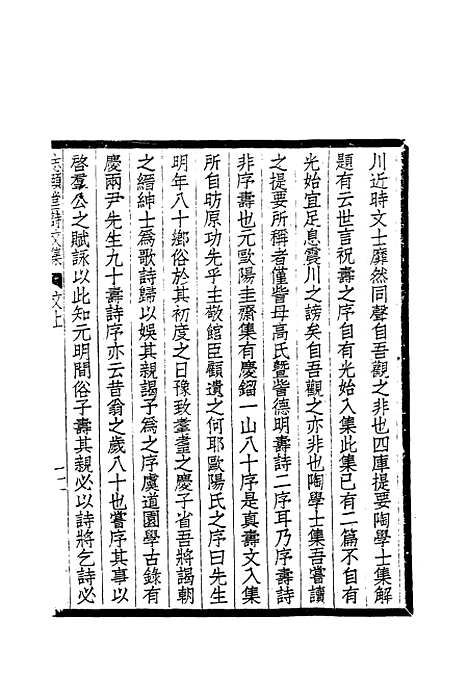 川近時文士靡然同聲自吾觀之非也四庫提要陶學士集解
題有云世言祝壽之序自有光始入集此集已有二篇不自有
光始宜足息震川之謗矣自吾觀之亦非也陶學士集吾嘗讀
之提要所稱者僅訾母高氏暨訾德明壽詩二序耳乃序壽詩
非序壽也元歐陽圭齋集有慶鎦一山八十序是真壽文入集
所自昉原功先乎主敬館臣顧遺之何耶歐陽氏之序曰先生
明年八十鄉俗於其初度之日豫致耋耋之慶子省吾將謁朝
之縉紳士爲歌詩歸以娛其親謁子爲之序虞道園學古錄有
慶兩尹先生九十壽詩序亦云昔翁之歲八十也嘗序其事以
啓羣公之賦詠以此知元明間俗子壽其親必以詩將乞詩必
堂詩文集 文上 十一